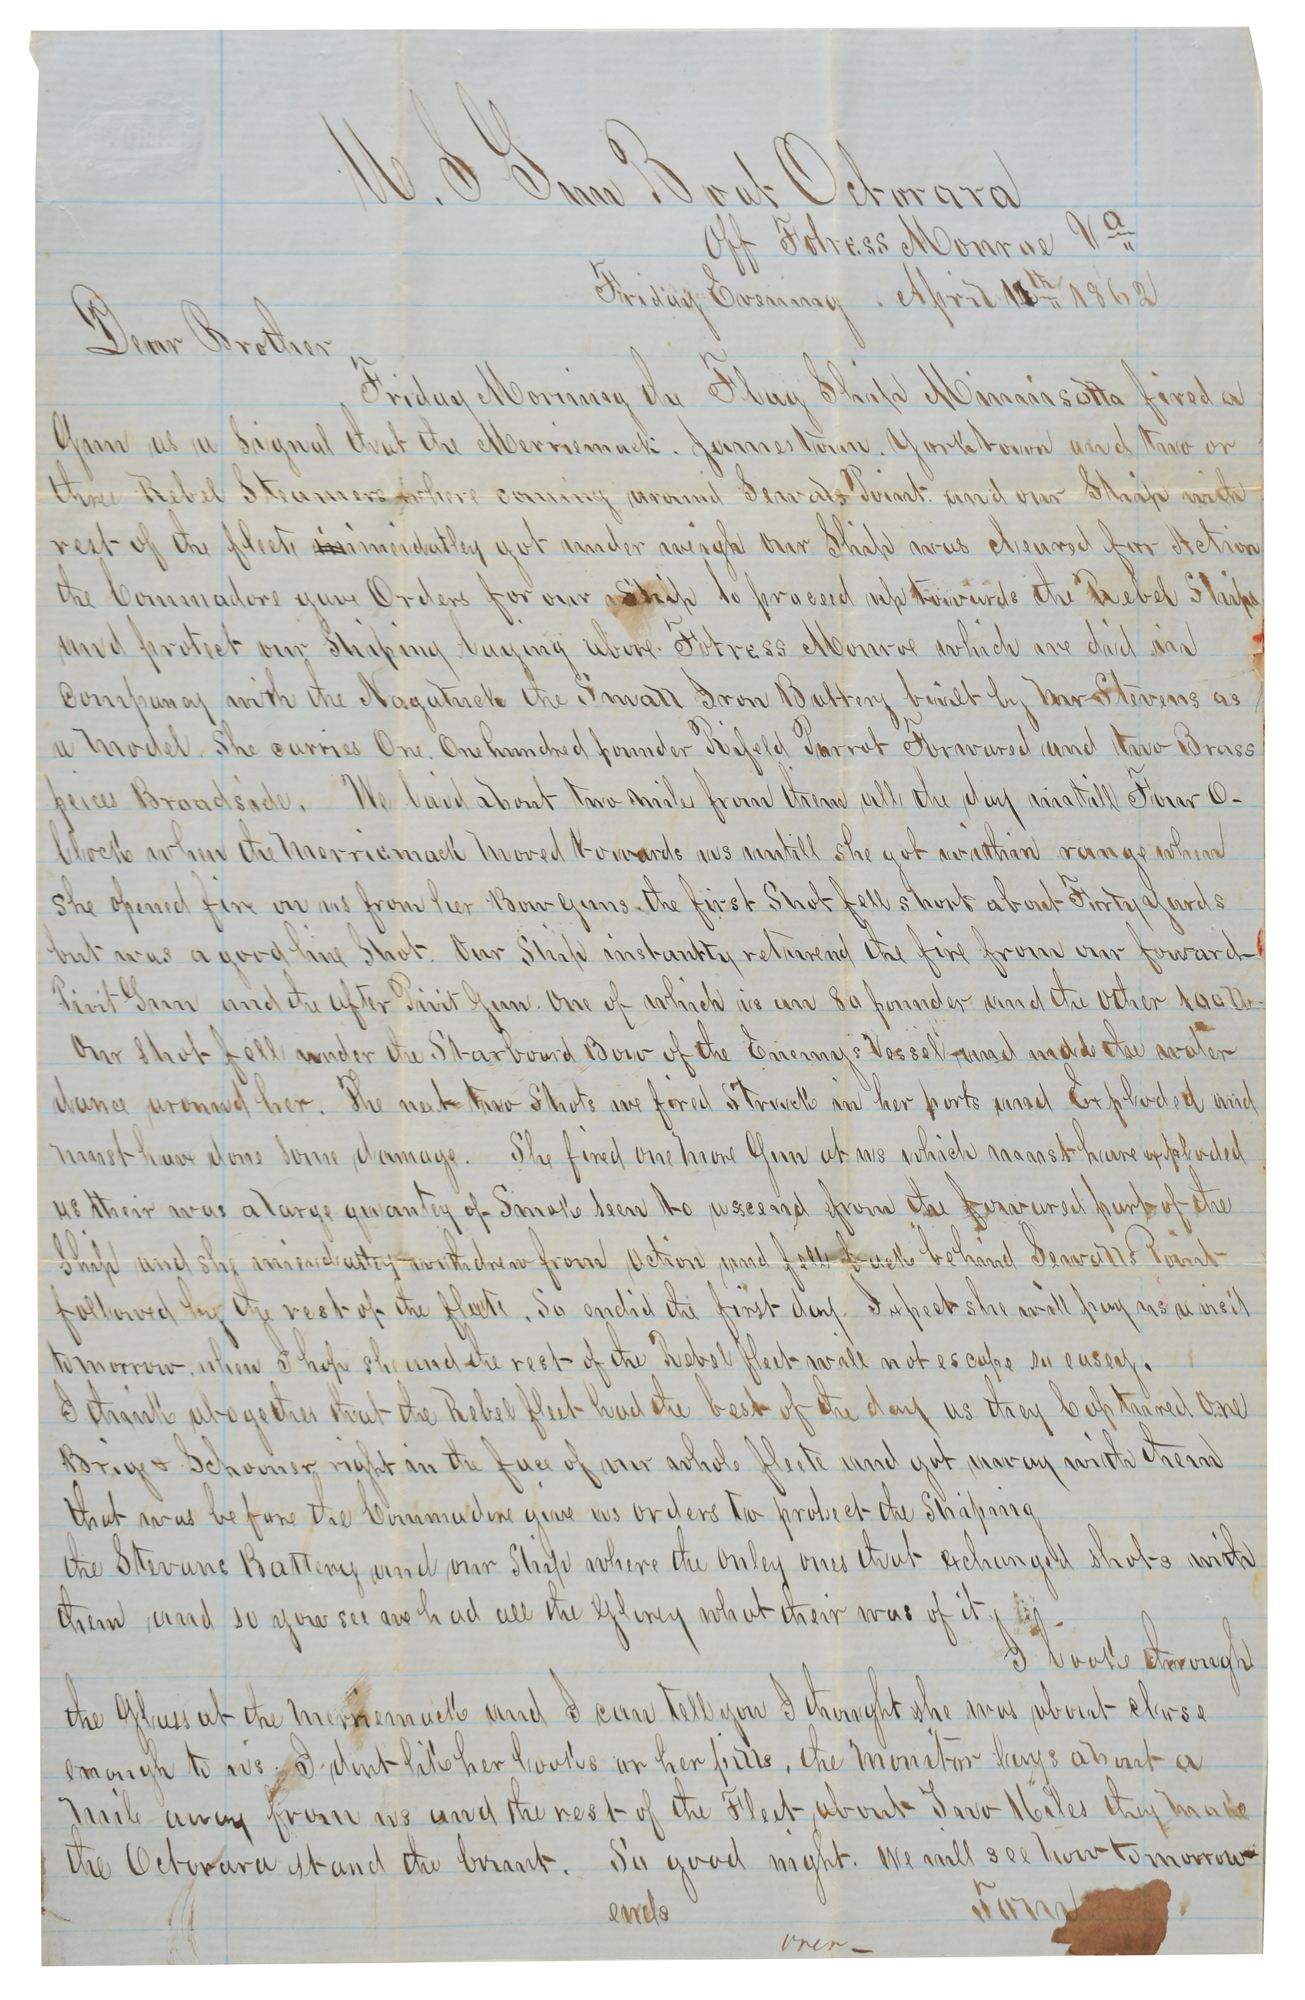 U. S Gun Boat Octorara
Off Fotress Monroe Va
Friday Evening April 11th 1862
Dear Brother
Friday Morning the Flag Ship Minnisotta fired a
Gun as a Signal that the Merriemack. Jamestown. Yorktown and two or
three Rebel Steamers where coming around Sewals Point. and our Ship with
rest of the fleete immeidatley got under weigh our Ship was cleared for Action
the Commadore gave Orders for our Ship to proceed up towards the Rebel Ships
and protect our Shiping laying above Fotress Monroe which we did in
Company with the Nagatuck the Small Iron Battery built by Mr Stevens as
a Model. She carries One. One hundred pounder Rifeld Parrot Forward and two Brass
peices Broadside. We laid about two mile from them all the day untill Four O-
Clock when the Merriemack Moved towards us untill she got within range when
she opened fire on us from her Bow Guns. the first Shot fell short about Forty yards
but was a good line Shot. Our Ship instantly returend the fire from our foward
Pivit Gun and the after Pivit Gun. One of which is an 80 pounder and the other 100 lb
Our Shot fell under the Starboard Bow of the Enemys Vessel and made the water
dance around her. The next two Shots we fired Struck in her ports and Exploded and
must have done some damage. She fired one more Gun at us which must have exploded
as their was a large quantey of Smoke seen to ascend from the forward part of the
Ship and she imiedatley withdrew from action and fell back behind Sewalls Point
followed by the rest of the fleete. So endid the first day. I expect she will pay us a visit
tomorrow. when I hope she and the rest of the Rebel fleet will not escape so easey.
I think altogether that the Rebel fleet had the best of the day as they Captured One
Brig & Schooner right in the face of our whole fleete and got away with them
that was before the Commadore give us orders to protect the Shiping
the Stevans Battery and our Ship where the onley ones that exchanged shots with
them and so you see we had all the Glorey what their was of it
I look through
the Glass at the Merriemack and I can tell you I thought she was about close
enough to us. I dont like her looks or her pills, the Monitor lays about a
Mile away from us and the rest of the Fleet about Two Miles they make
the Octorara stand the brunt. So good night. We will see how tomorrow
ends
Tom
over